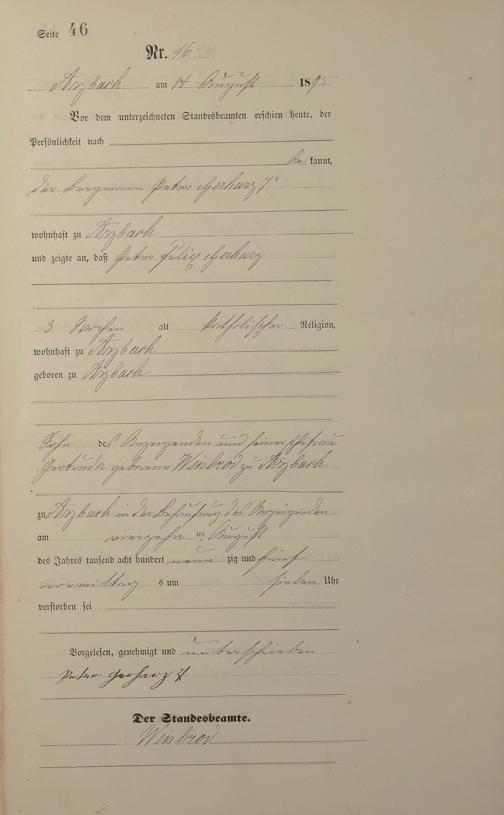 Seite 46
Nr. 16
Arzbach am 14 August 1895
Vor dem unterzeichneten Standesbeamten erschien heute, der
Persönlichkeit nach
be kannt,
der Bergmann Peter Gerharz 7"
wohnhaft zu Arzbach
und zeigte an, daß Peter Felix Gerharz
3 Wochen alt katholischer Religion,
wohnhaft zu Arzbach
geboren zu Arzbach
Sohn des Anzeigenden und seiner Ehefrau
Gertrude geborene Weisbrod zu Arzbach
zu Arzbach in der Behausung des Anzeigenden
am vierzehn ten August
des Jahres tausend acht hundert neun zig und fünf
vormittag s um sieben Uhr
verstorben sei
Vorgelesen, genehmigt und unterschrieben
Peter Gerharz 7
Der Standesbeamte.
Weisbrod